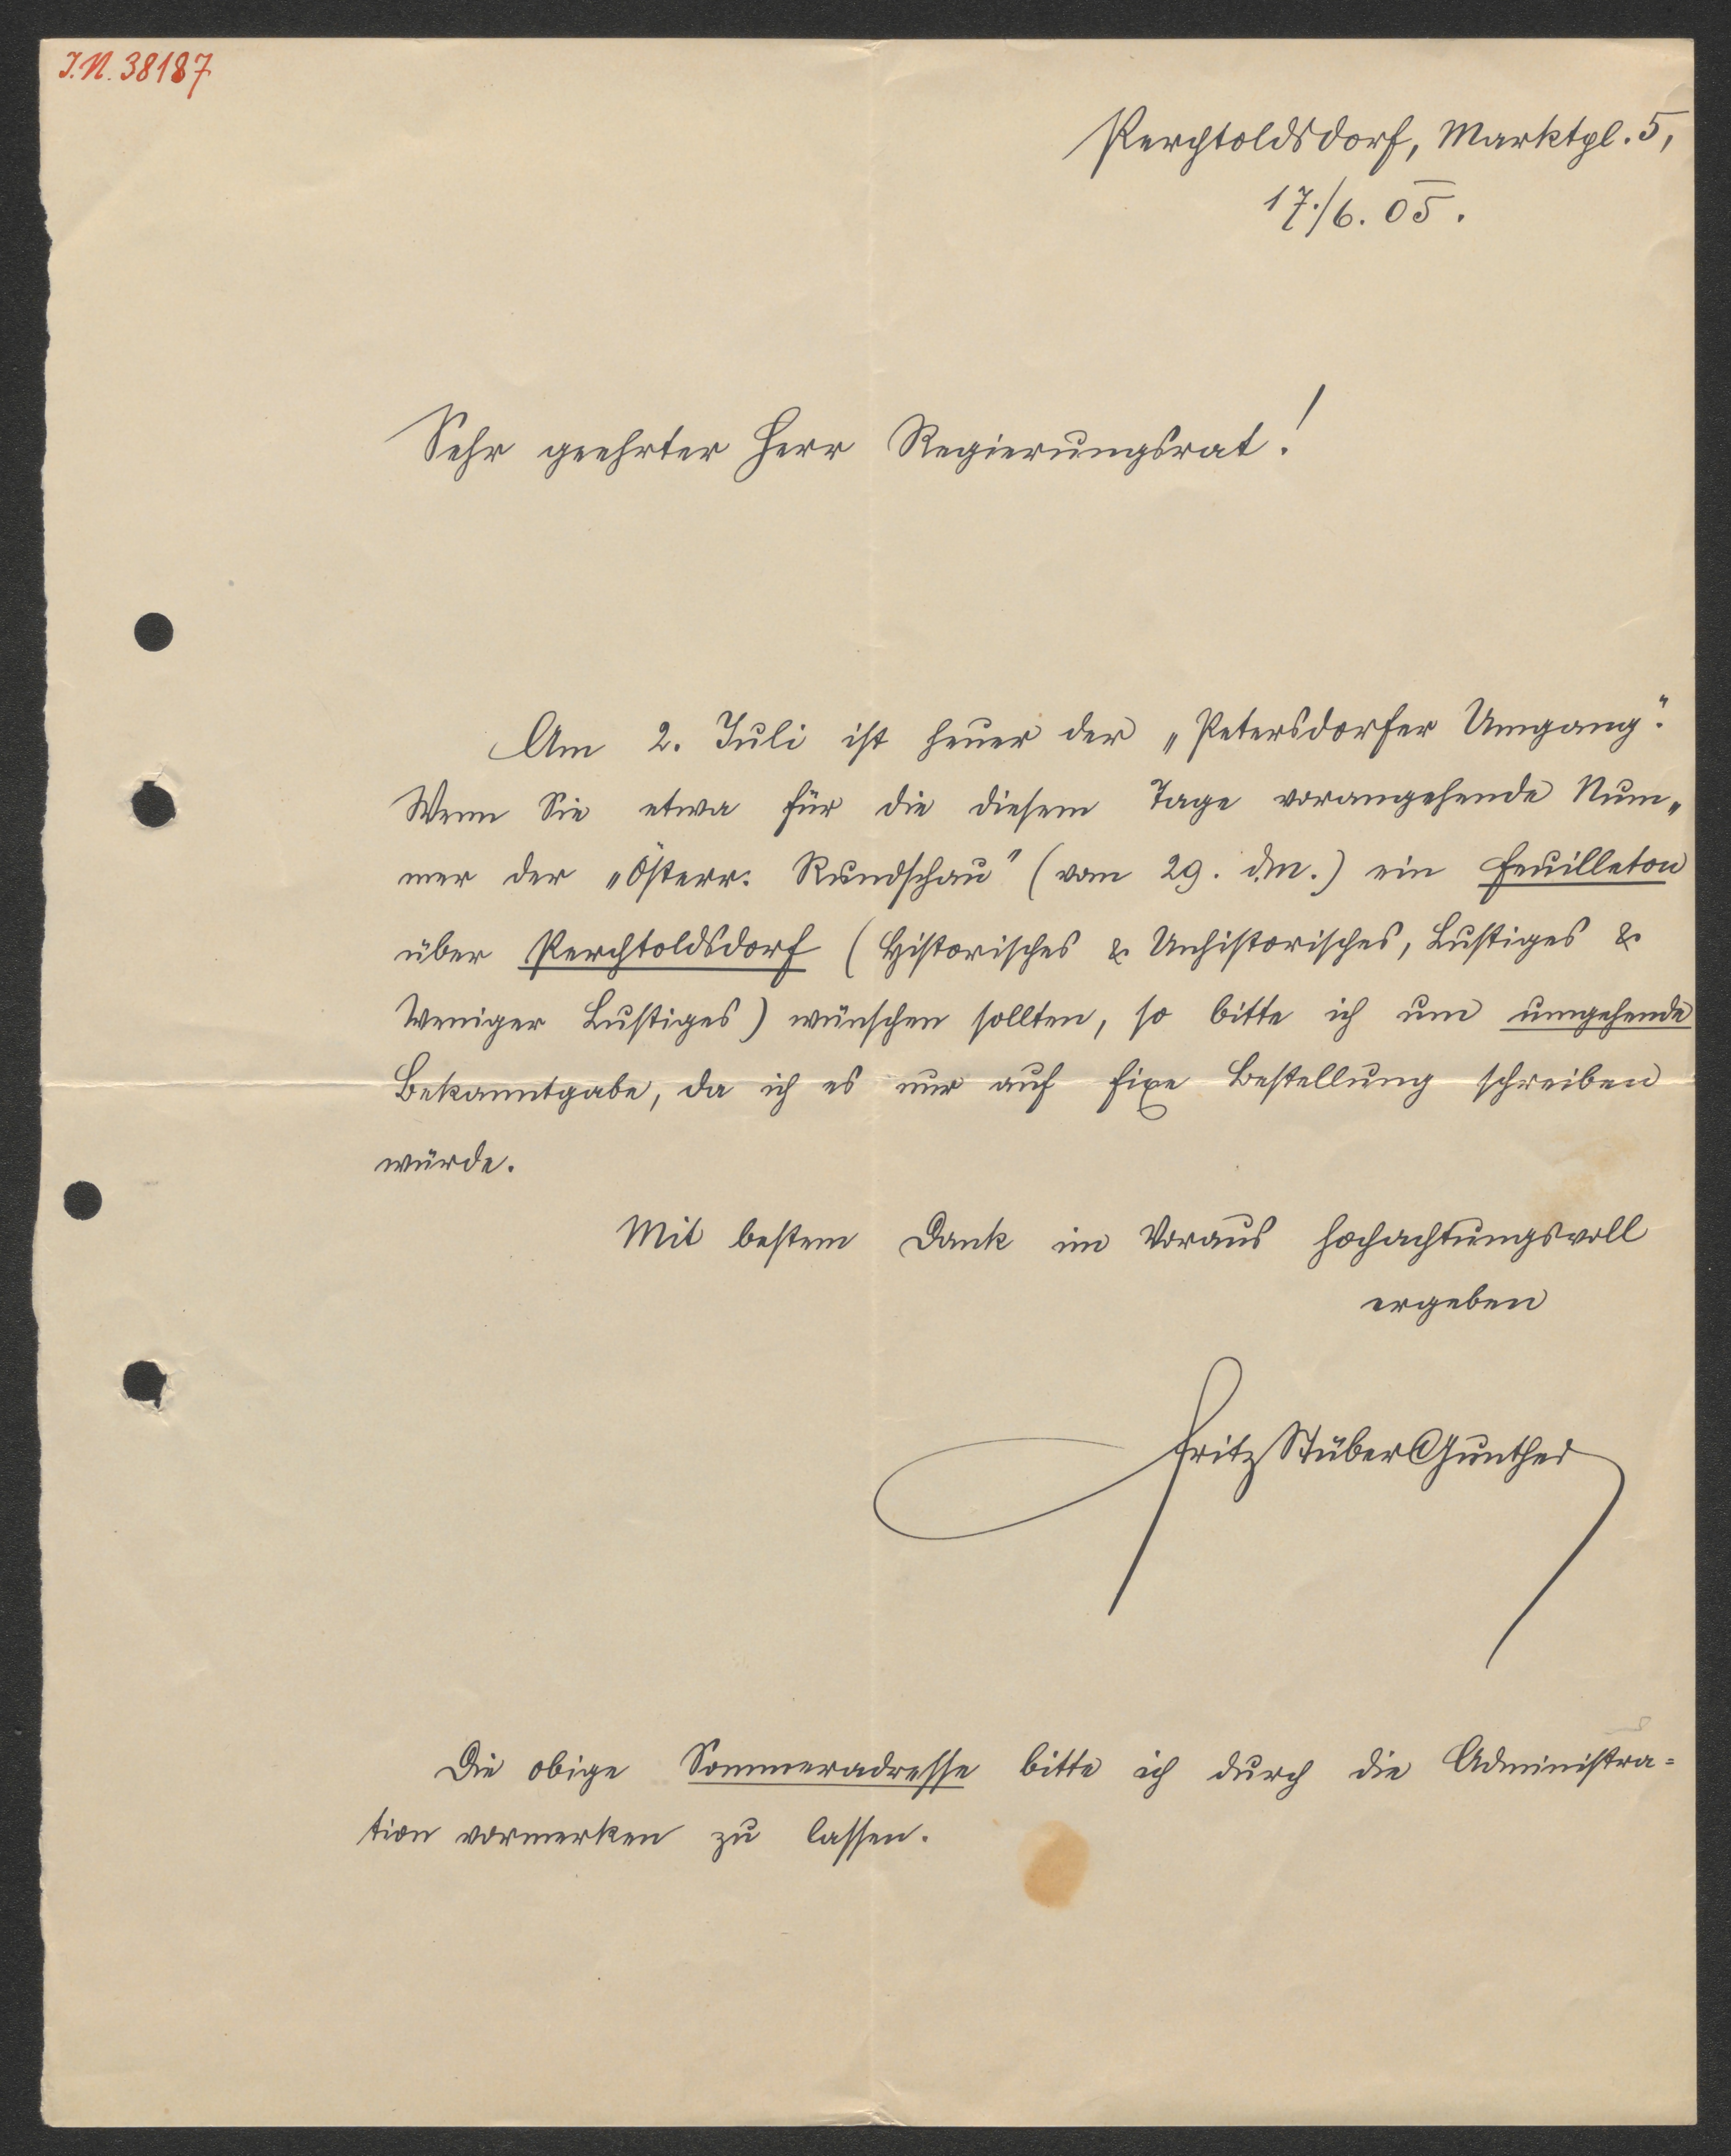 I.N. 38187
Perchtoldsdorf, Marktpl. 5,
17./6. 05.
Sehr geehrter Herr Regierungsrat!
Am 2. Juli ist heuer der „Petersdorfer Umgang".
Wenn Sie etwa für die diesem Tage vorangehende Num„
mer der „Österr. Rundschau" (vom 29. d.M.) ein Feuilleton
über Perchtoldsdorf (Historisches & Unhistorisches, Lustiges &
Weniger Lustiges) wünschen sollten, so bitte ich um umgehende
Bekanntgabe, da ich es nur auf fixe Bestellung schreiben
würde.
Mit bestem Dank im Voraus hochachtungsvoll
ergeben
Fritz Stüber Gunther
Die obige Sommeradresse bitte ich durch die Administra=
tion vormerken zu lassen.